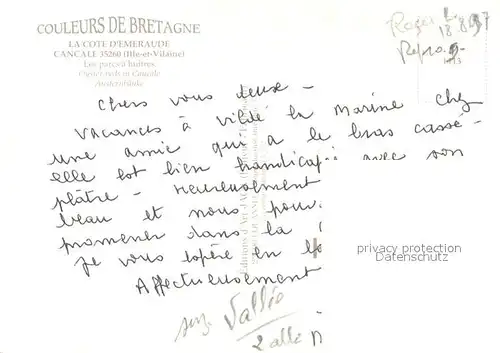 COULEURS DE BRETAGNE
LA COTE D'EMERAUDE
CANCALE 35260 (Ille-et-Vilaine)
Les parcs à huîtres
Oyster beds in Cancale
Austernbänke
18.8.97
Chers vous deux -
Vacances à Vildé la Marine chez
une amie qui a le bras cassé -
elle est bien handicapée avec son
plâtre - Heureusement
beau et nous pouv
promener dans la
Je vous espère en
Affectueusement
privacy protection
Datenschutz